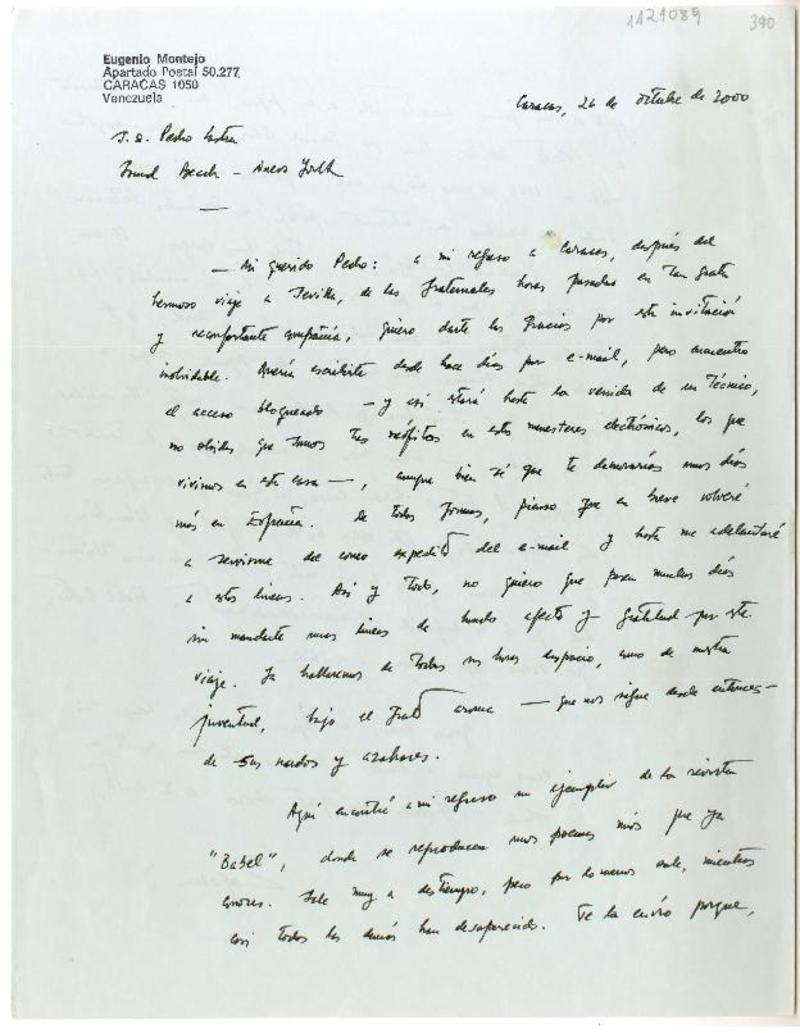 1121089
390
Eugenio Montejo
Apartado Postal 50.277
CARACAS 1050
Venezuela
Caracas, 26 de octubre de 2000
S. D. Pedro Lastra
Sound Beach – Nueva York
— Mi querido Pedro: a mi regreso a Caracas, después del
hermoso viaje a Sevilla, de las fraternales horas pasadas en tan grata
y reconfortante compañía, quiero darte las gracias por esta invitación
inolvidable. Quería escribirte desde hace días por e-mail, pero encuentro
el acceso bloqueado — y así estará hasta la venida de un técnico,
no olvides que somos tres neófitos en estos menesteres electrónicos, los que
vivimos en esta casa —, aunque bien sé que te demorarías unos días
más en España. De todas formas, pienso que en breve volveré
a servirme del correo expedito del e-mail y hasta me adelantaré
a estas líneas. Así y todo, no quiero que pasen muchos días
sin mandarte unas líneas de hondo afecto y gratitud por este
viaje. Ya hablaremos de todas sus horas despacio, como de nuestra
juventud, bajo el grato aroma — que nos sigue desde entonces —
de sus nardos y azahares.
Aquí encontré a mi regreso un ejemplar de la revista
"Babel", donde se reproducen unos poemas míos que ya
conoces. Sale muy a destiempo, pero por lo menos sale, mientras
casi todas las demás han desaparecido. Te la envío porque,